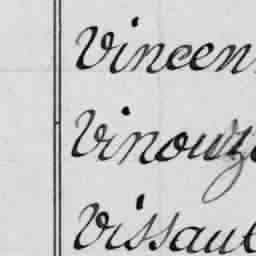 Vincen
Vinouze
Vissaut